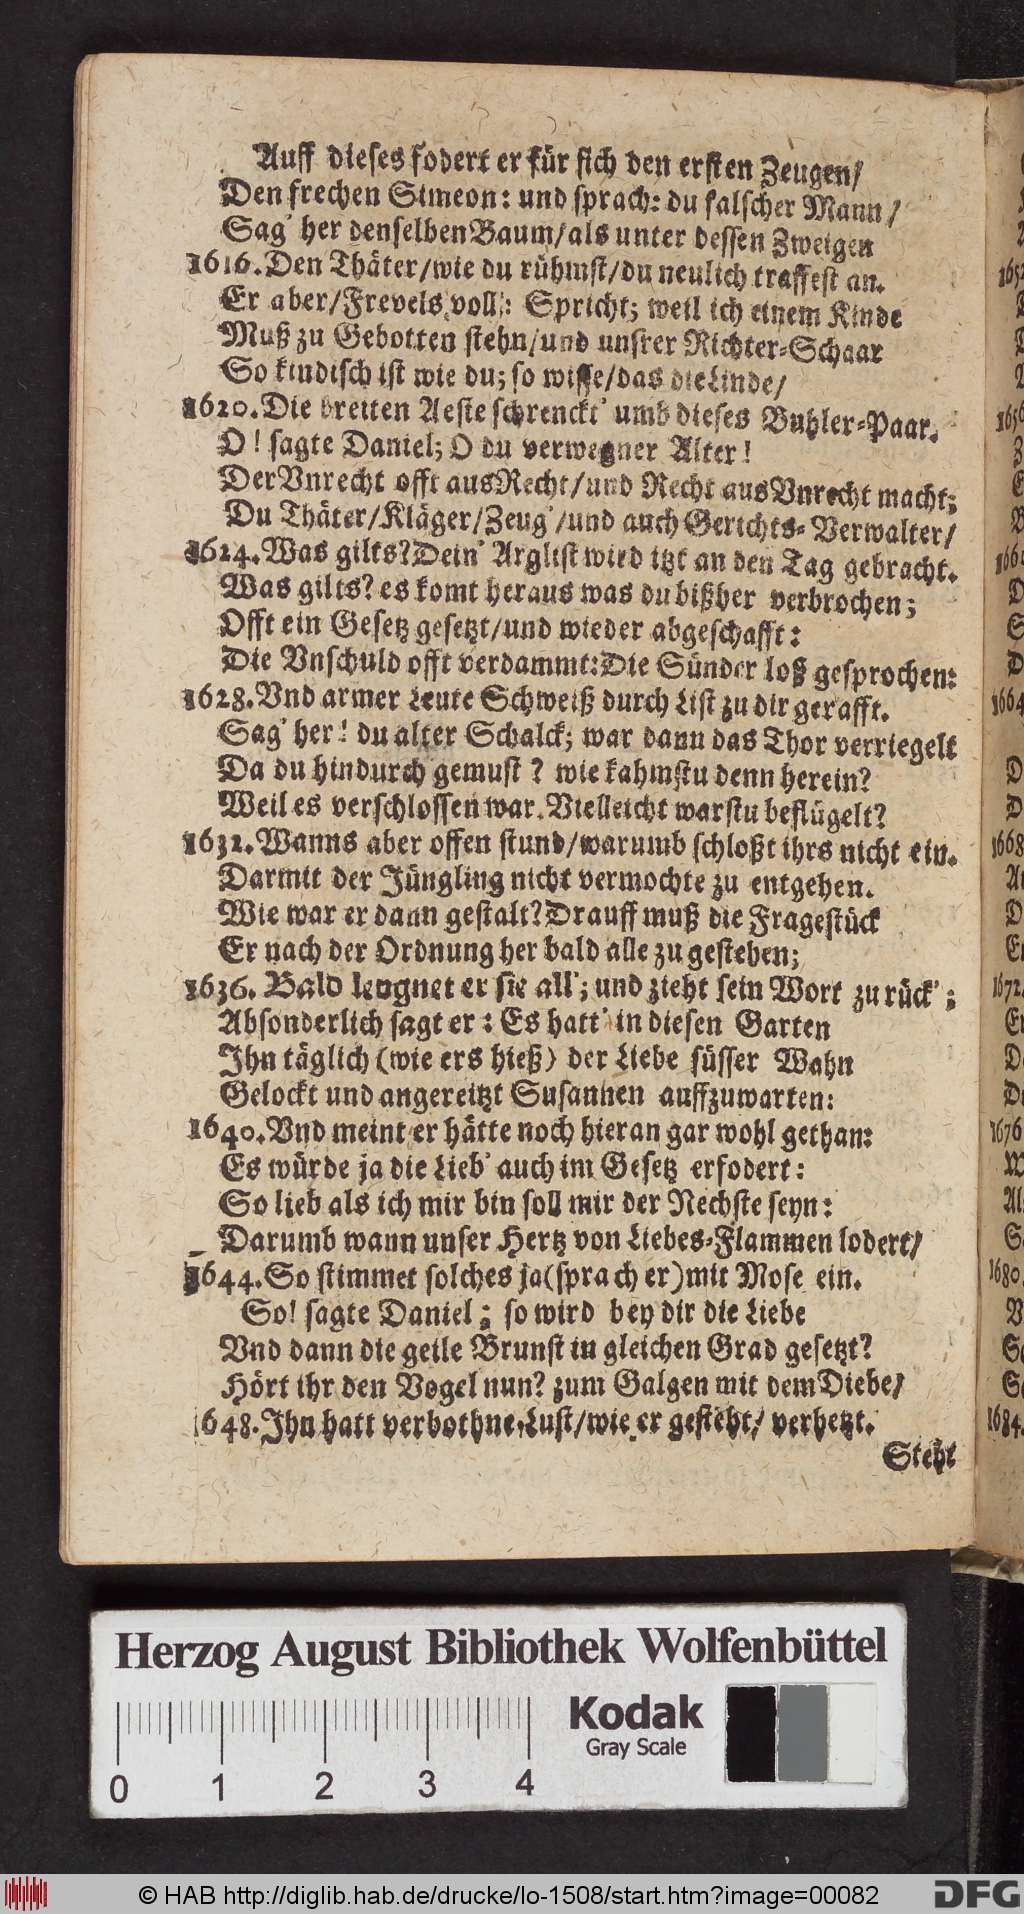 Auff dieses fodert er für sich den ersten Zeugen/
Den frechen Simeon: und sprach: du falscher Mann/
Sag' her denselben Baum/als unter dessen Zweigen
1616. Den Thäter/wie du rühmst/du neulich traffest an.
Er aber/Frevels voll: Spricht; weil ich einem Kinde
Muß zu Gebotten stehn/und unsrer Richter-Schaar
So kindisch ist wie du; so wisse/das die Linde/
1620. Die breiten Aeste schrenckt' umb dieses Buhler-Paar.
O! sagte Daniel; O du verwegner Alter!
Der Vnrecht offt aus Recht/und Recht aus Vnrecht macht;
Du Thäter/Kläger/Zeug'/und auch Gerichts-Verwalter/
1624. Was gilts? Dein' Arglist wird itzt an den Tag gebracht.
Was gilts? es komt heraus was du bißher verbrochen;
Offt ein Gesetz gesetzt/und wieder abgeschafft:
Die Vnschuld offt verdammt: Die Sünder loß gesprochen:
1628. Vnd armer Leute Schweiß durch List zu dir gerafft.
Sag' her! du alter Schalck; war dann das Thor verriegelt
Da du hindurch gemust? wie kahmstu denn herein?
Weil es verschlossen war. Vielleicht warstu beflügelt?
1632. Wanns aber offen stund/warumb schloßt ihrs nicht ein.
Darmit der Jüngling nicht vermochte zu entgehen.
Wie war er dann gestalt? Drauff muß die Fragestück
Er nach der Ordnung her bald alle zu gestehen;
1636. Bald leugnet er sie all'; und zieht sein Wort zu rück';
Absonderlich sagt er: Es hatt' in diesen Garten
Ihn täglich (wie ers hieß) der Liebe süsser Wahn
Gelockt und angereitzt Susannen auffzuwarten:
1640. Vnd meint er hätte noch hieran gar wohl gethan:
Es würde ja die Lieb' auch im Gesetz erfodert:
So lieb als ich mir bin soll mir der Nechste seyn:
Darumb wann unser Hertz von Liebes-Flammen lodert/
1644. So stimmet solches ja (sprach er) mit Mose ein.
So! sagte Daniel; so wird bey dir die Liebe
Vnd dann die geile Brunst in gleichen Grad gesetzt?
Hört ihr den Vogel nun? zum Galgen mit dem Diebe/
1648. Ihn hatt verbothne Lust/wie er gesteht/ verhetzt.
Steht
1656
1664
1668
1672.
1676
1680.
1684.
Herzog August Bibliothek Wolfenbüttel
Kodak
Gray Scale
0 1 2 3 4
© HAB http://diglib.hab.de/drucke/lo-1508/start.htm?image=00082
DFG